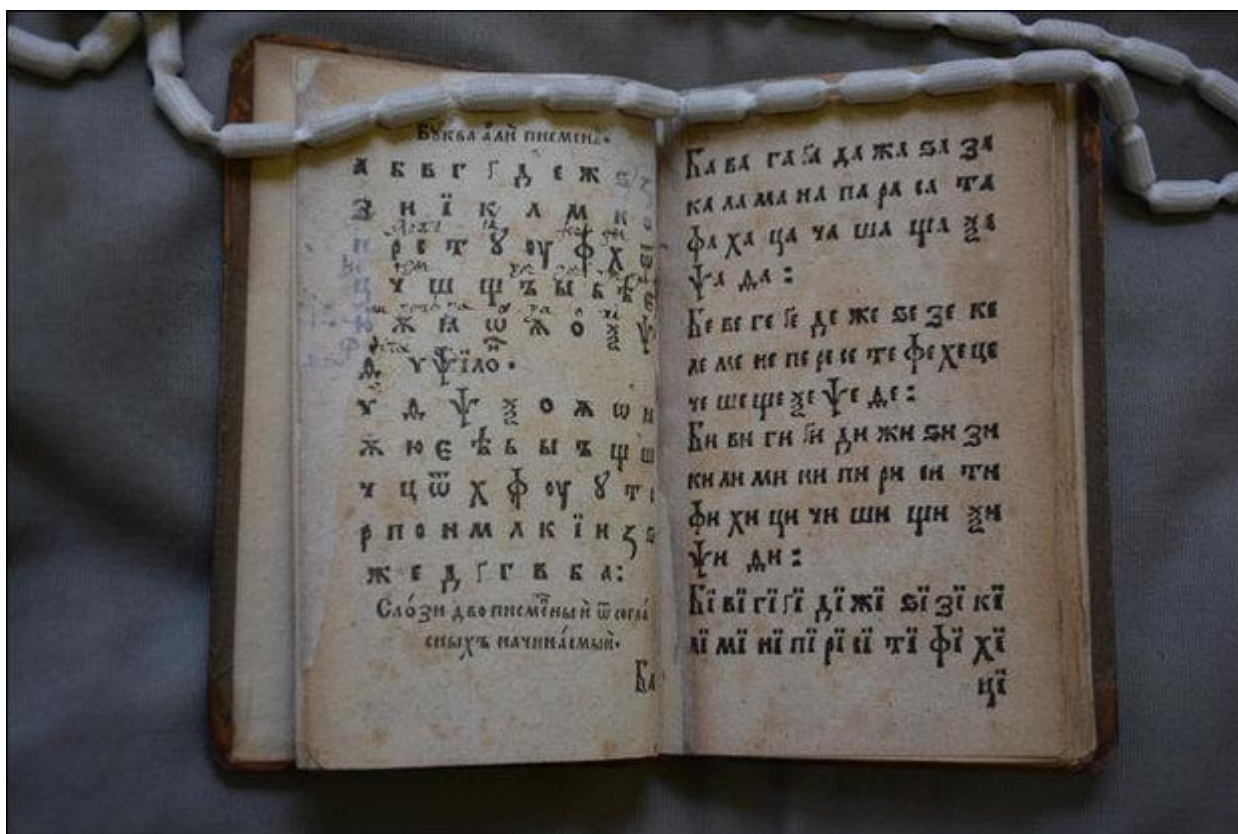 Бꙋква а҆лѝ писмена̀.
а б в г ґ д є ж ѕ
з и ї к л м н
п р с т ꙋ оу ф х ѿ
ц ч ш щ ъ ы ь ѣ є
ю ѫ ѩ ѡ ѫ о ѯ ѱ
ѳ ѵ ѱїло .
ѵ ѳ ѱ ѯ о ѫ ѡ
ѫ ю є ѣ ь ы ъ щ ш
ч ц ѿ х ф оу ꙋ т с
р п о н м л к ї и з ѕ
ж є д ґ г в б а :
Сло́зи двописме́нны и҆ ѿ согла́
сныхъ начина́емыи.
Ба
Ба ва га ґа да жа ѕа за
ка ла ма на па ра са та
фа ха ца ча ша ща ѯа
ѱа ѳа :
Бє вє гє ґє дє жє ѕє зє кє
лє мє нє пє рє сє тє фє хє цє
чє шє щє ѯє ѱє ѳє :
Би ви ги ґи ди жи ѕи зи
ки ли ми ни пи ри си ти
фи хи ци чи ши щи ѯи
ѱи ѳи :
Бї вї гї ґї дї жї ѕї зї кї
лї мї нї пї рї сї тї фї хї
цї